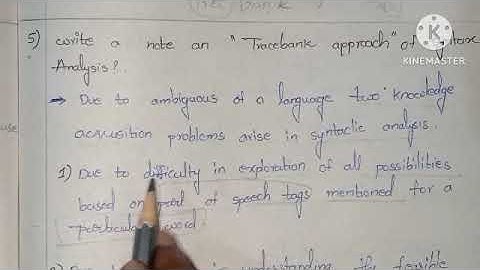 5) Write a note an "Tracebank approach" of
KINEMASTER
Analysis?.
→ Due to ambiguous of a language two knowledge
use
acquisition problems arise in syntaclic analysis.
1) Due to difficulty in exploration of all possibilities
based on of speech tags mentioned for a
word.
understanding the feasible